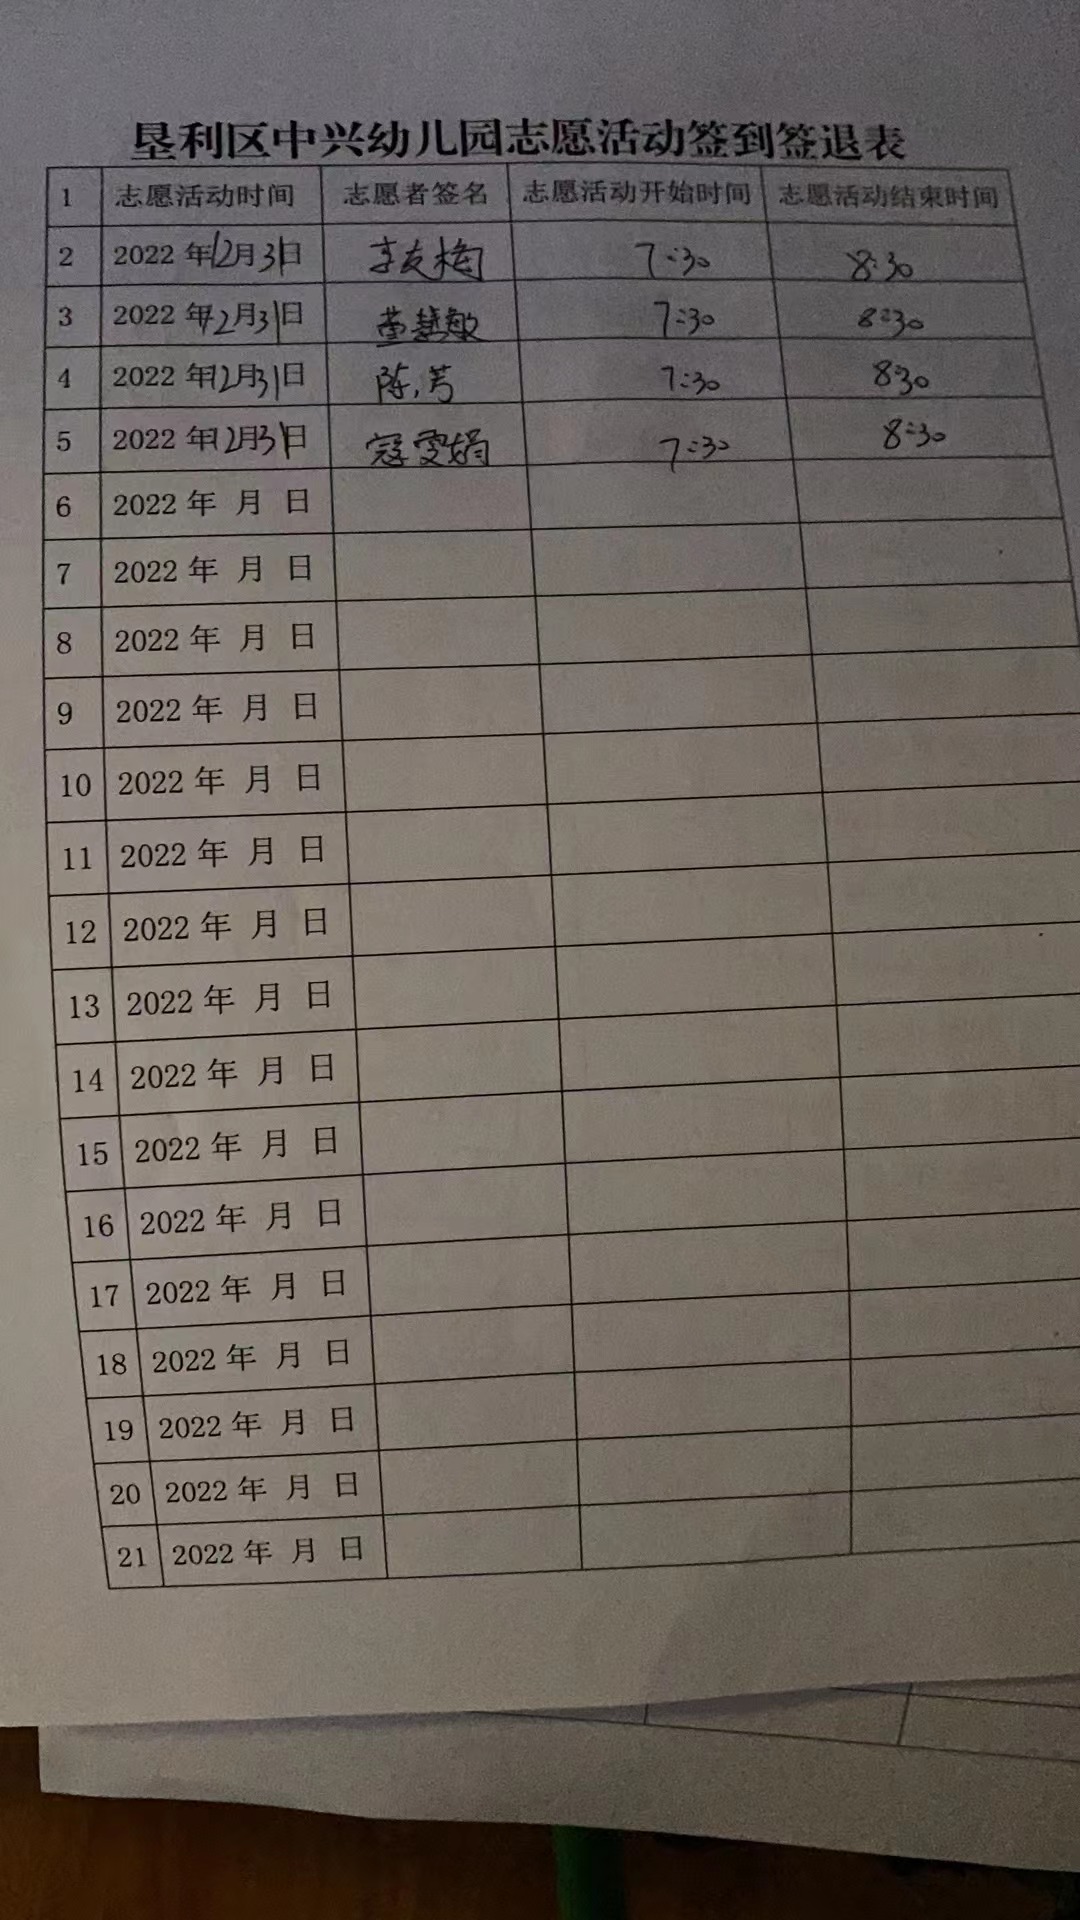 垦利区中兴幼儿园志愿活动签到签退表
1 志愿活动时间 志愿者签名 志愿活动开始时间 志愿活动结束时间
2 2022年12月31日 李友梅 7:30 8:30
3 2022年12月31日 董慧敏 7:30 8:30
4 2022年12月31日 陈芳 7:30 8:30
5 2022年12月31日 寇雯娟 7:30 8:30
6 2022年 月 日
7 2022年 月 日
8 2022年 月 日
9 2022年 月 日
10 2022年 月 日
11 2022年 月 日
12 2022年 月 日
13 2022年 月 日
14 2022年 月 日
15 2022年 月 日
16 2022年 月 日
17 2022年 月 日
18 2022年 月 日
19 2022年 月 日
20 2022年 月 日
21 2022年 月 日